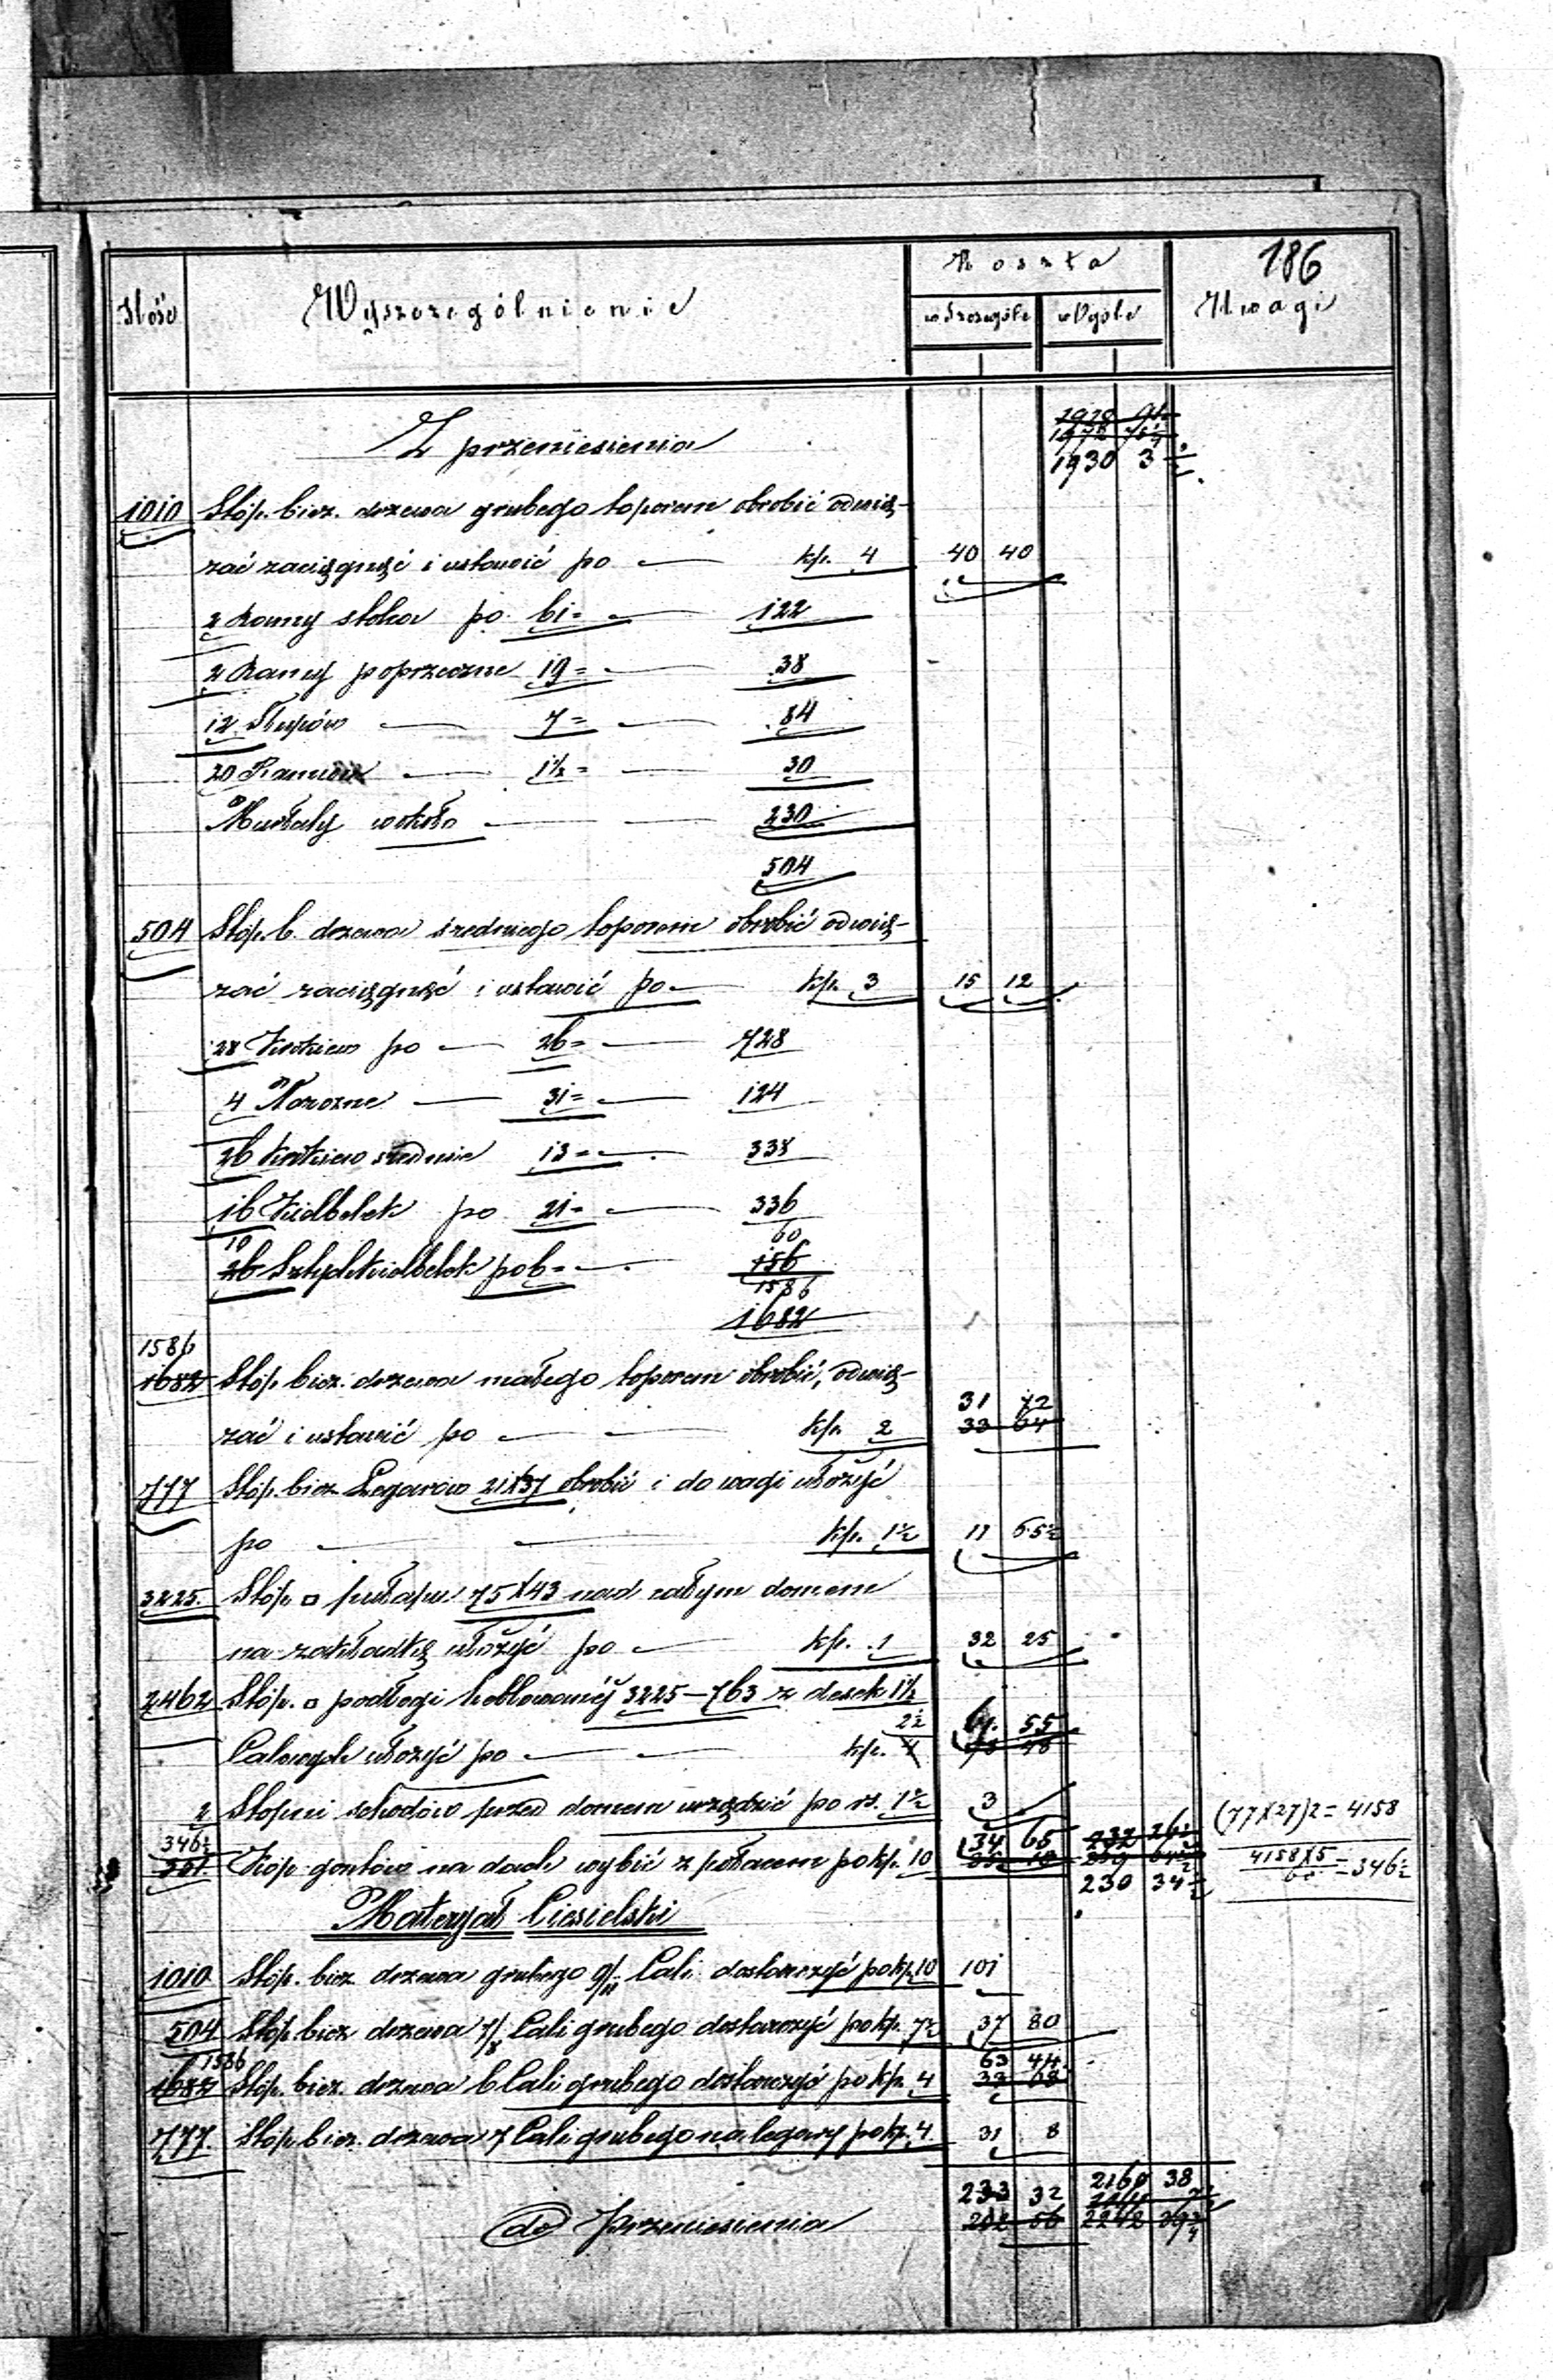 186
Ilość Wyszczególnienie Koszta Uwagi
w Szczególe w Ogóle
Z przeniesienia
1930 3 1/2
1010 Stóp. bież. drzewa grubego toporem obrobić odwią-
zać zaciągnąć i ustawić po — kp. 4 40 40
2 Ramy stolca po 61= — 122
2 Ramy poprzeczne 19= — 38
12 Słupów — 7= — 84
20 — 1½= — 30
Murłaty wokoło — 230
504
504 Stóp. b. drzewa średniego toporem obrobić odwią-
zać zaciągnąć i ustawić po — kp. 3 15 12
28 Krokiew po — 26= — 728
4 Narożne — 31= — 124
26 Krokiew średnie 13= — 338
16 Kielbelek po 21= — 336
10 60
26 Sztychkielbelek po 6= — 156
1586
1682
1586
1682 Stóp. bież. drzewa małego toporem obrobić, odwią- 31 72
zać i ustawić po — kp. 2 33 64
777 Stóp. bież. Legarów 21X37 obrobić i do wagi ułożyć
po — kp. 1½ 11 65½
3225. Stóp. □ pułapu 75X43 nad całym domem
na zakładkę ułożyć po — kp. 1 32 25
2462 Stóp. □ podłogi heblowanéj 3225—763 z desek 1½
2½ 61. 55
Calowych ułożyć po — kp. 4
2 Stopni schodów przed domem urządzić po rs. 1½ 3
(77X27)2=4158
346½ 34 65 232 26½
Kóp gontów na dach wybić z połaceniem po kp. 10
4158X5/60=346½
230 34½
Materyał Ciesielski
1010 Stóp. bież. drzewa grubego 9/11 Cali dostarczyć po kp. 10 101
504 Stóp. bież drzewa 7/8 Cali grubego dostarczyć po kp. 7½ 37 80
1586 63 44
1682 Stóp. bież. drzewa 6 Cali grubego dostarczyć po kp. 4 33 68
777. Stóp. bież. drzewa 7 Cali grubego na legary po kp. 4 31 8
233 32 2160 38
do Przeniesienia 2242